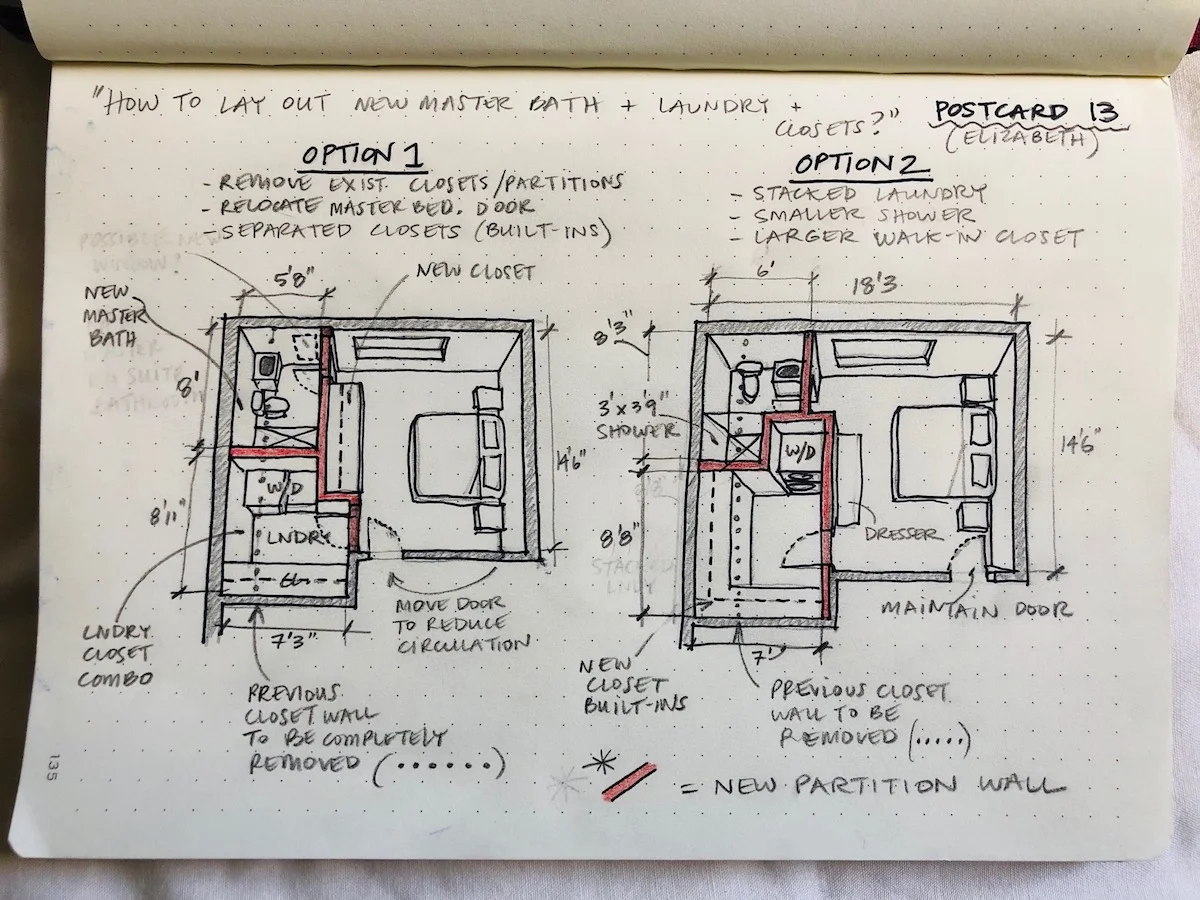 "HOW TO LAY OUT NEW MASTER BATH + LAUNDRY +
CLOSETS?"
POSTCARD 13
(ELIZABETH)
OPTION 1
- REMOVE EXIST. CLOSETS/PARTITIONS
- RELOCATE MASTER BED. DOOR
- SEPARATED CLOSETS (BUILT-INS)
POSSIBLE NEW
WINDOW?
NEW CLOSET
5'8"
NEW
MASTER
BATH
8'
14'6"
W/D
8'11"
LNDRY
LNDRY
CLOSET
COMBO
7'3"
MOVE DOOR
TO REDUCE
CIRCULATION
PREVIOUS
CLOSET WALL
TO BE COMPLETELY
REMOVED (......)
OPTION 2
- STACKED LAUNDRY
- SMALLER SHOWER
- LARGER WALK-IN CLOSET
6'
18'3
8'3"
3'x3'9"
SHOWER
W/D
14'6"
8'8"
DRESSER
MAINTAIN DOOR
7'
NEW
CLOSET
BUILT-INS
PREVIOUS CLOSET
WALL TO BE
REMOVED (.....)
* = NEW PARTITION WALL
135